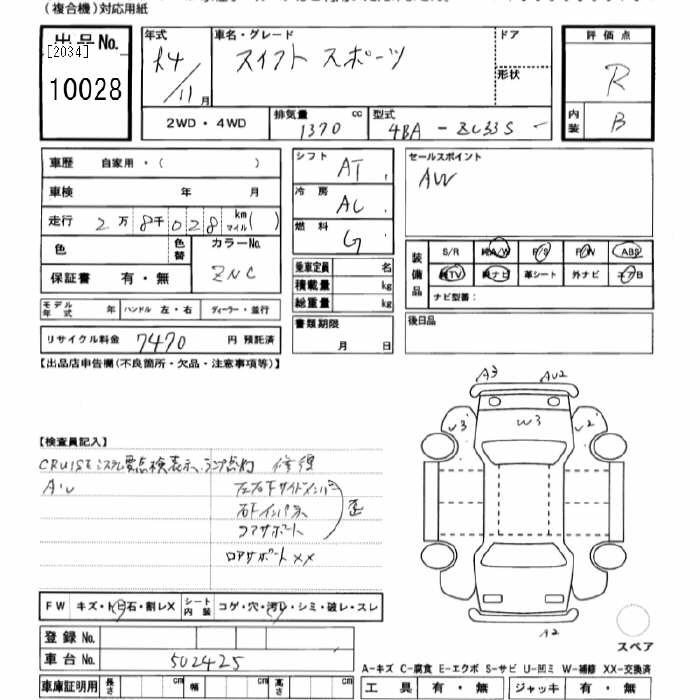 (複合機)対応用紙
出品No.
[2034]
10028
年式
R4/11月
車名・グレード
スイフト スポーツ
ドア
形状
評価点
R
内装
B
2WD・4WD
排気量 cc
1370
型式
4BA - ZC33S
車歴 自家用・( )
車検 年 月
走行 2万8千028 km マイル( )
色
色替
カラーNo.
ZNC
保証書 有・無
モデル年式 年
ハンドル 左・右
ディーラー・並行
リサイクル料金 7470 円 預託済
シフト AT
冷房 AC
燃料 G
乗車定員 名
積載量 kg
総重量 kg
書類期限
月 日
セールスポイント
AW
装備品
S/R
純A/W
P/S
P/W
ABS
純TV
純ナビ
革シート
外ナビ
エアB
ナビ型番:
後日品
【出品店申告欄(不良箇所・欠品・注意事項等)】
A3
AU2
W3
U3
U2
A2
スペア
【検査員記入】
CRUISEシステム要点検表示、ランプ点灯
AU
修復
左右下サイドメンバー
右下インパネ
コアサポート
歪
ロアサポートXX
FW キズ・トビ石・割レX
シート内装 コゲ・穴・汚レ・シミ・破レ・スレ
登録No.
車台No. 502425
車庫証明用
長さ cm
幅 cm
高さ cm
A-キズ C-腐食 E-エクボ S-サビ U-凹ミ W-補修 XX-交換済
工具 有・無
ジャッキ 有・無